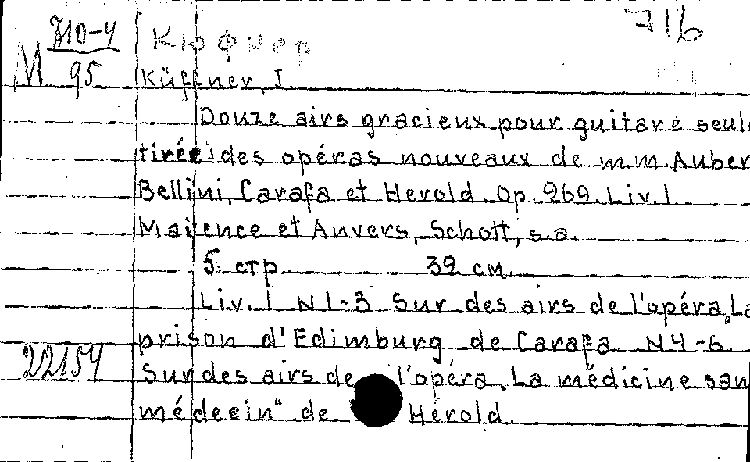 M 710-4
95
716
Кюфнер
Küffner, I.
Douze airs gracieux pour guitare seule
tirée des opéras nouveaux de m.m. Auber
Bellini, Carafa et Herold. Op. 269. Liv. 1.
Maience et Anvers, Schott, s.a.
5 стр. 32 см.
Liv. 1 N 1-3 Sur des airs de l'opéra „La
prison d'Edimburg de Carafa N 4-6
22154
Sur des airs de l'opéra „La médicine san
médecin" de Hérold.